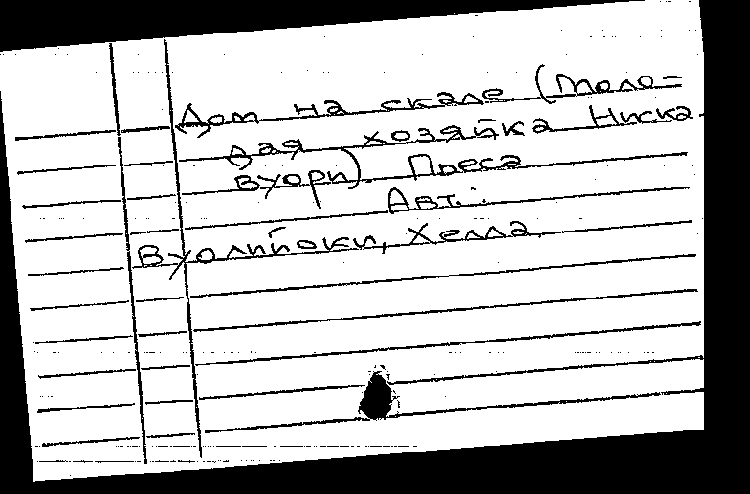 Дом на скале (Моло=
дая хозяйка Ниска-
вуори). Пьеса
Авт.:
Вуолийоки, Хелла.